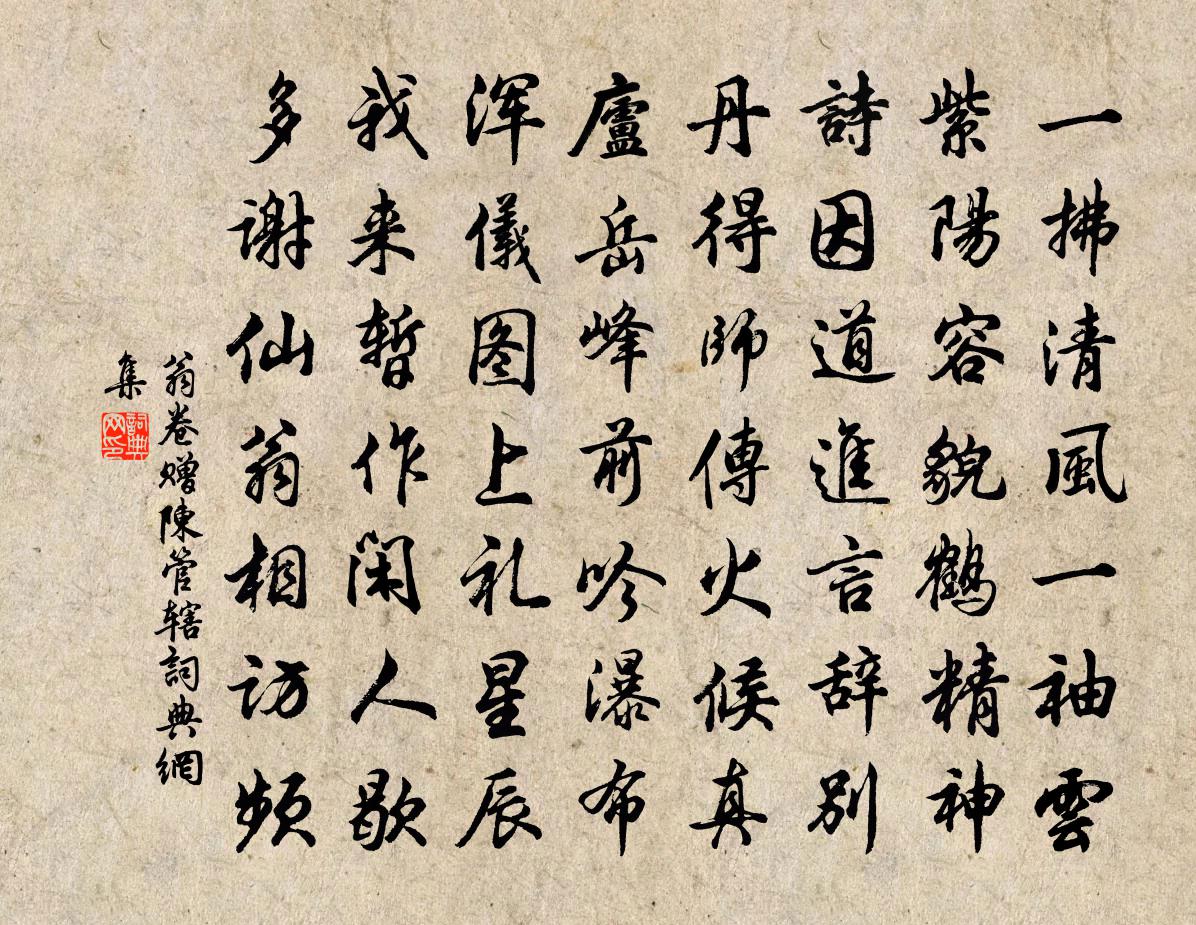 一拂清風一袖雲
紫陽容貌鶴精神
詩因道進言辞别
丹得师傳火候真
廬岳峰前吟瀑布
浑儀图上礼星辰
我来暫作闲人歇
多谢仙翁相访频
翁卷赠陳管辖詞典網
集
詞典网印